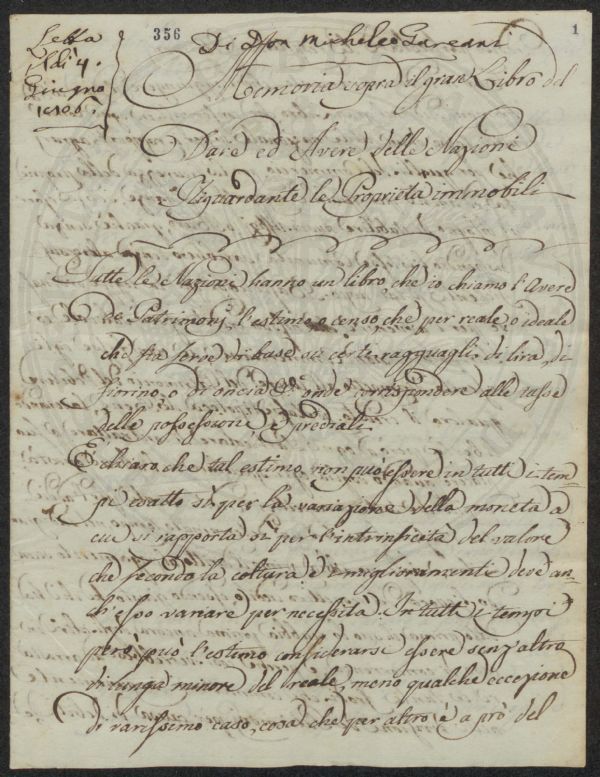 Letta
il dì 4.
Giugno
1806.
356
1
Di Don Michele
Memoria sopra il gran Libro del
Dare ed Avere delle Nazioni
Riguardante le Proprietà immobili
Tutte le Nazioni hanno un libro che io chiamo l'Avere
de' Patrimonj l'estimo, o censo che per reale, o ideale
che sia serve di base su certi ragguagli di lira, di
fiorino, o di oncia &c. onde corrispondere alle tasse
delle possessioni, e prediali.
È chiaro, che tal estimo non può essere in tutti i tem-
pi esatto sì per la variazione della moneta a
cui si rapporta sì per l'intrinsicità del valore
che secondo la coltura, e i miglioramenti deve an-
ch'esso variare per necessità. In tutti i tempi
però può l'estimo considerarsi essere senz'altro
di lunga minore del reale, meno qualche eccezione
di rarissimo caso, cosa che per altro è a prò del